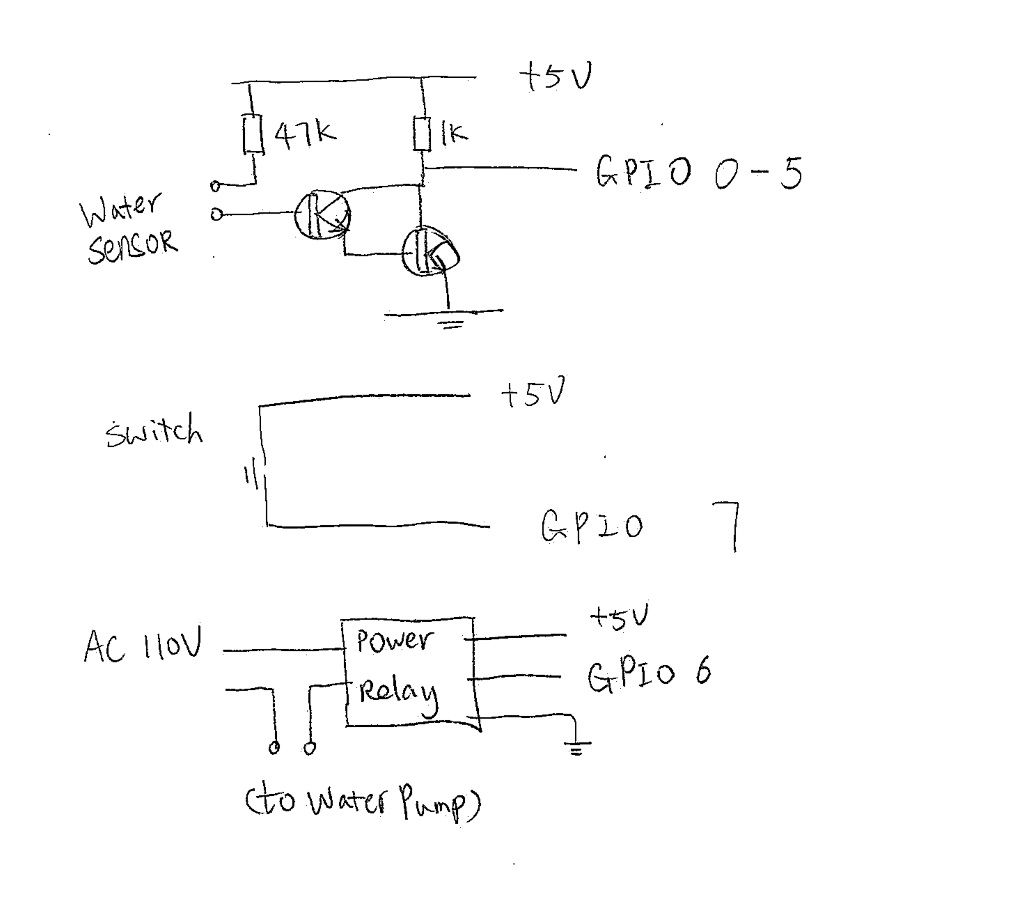 +5V
47K
1K
GPIO 0-5
Water
SENSOR
+5V
Switch
GPIO 7
+5V
AC 110V
Power
Relay
GPIO 6
(to Water Pump)